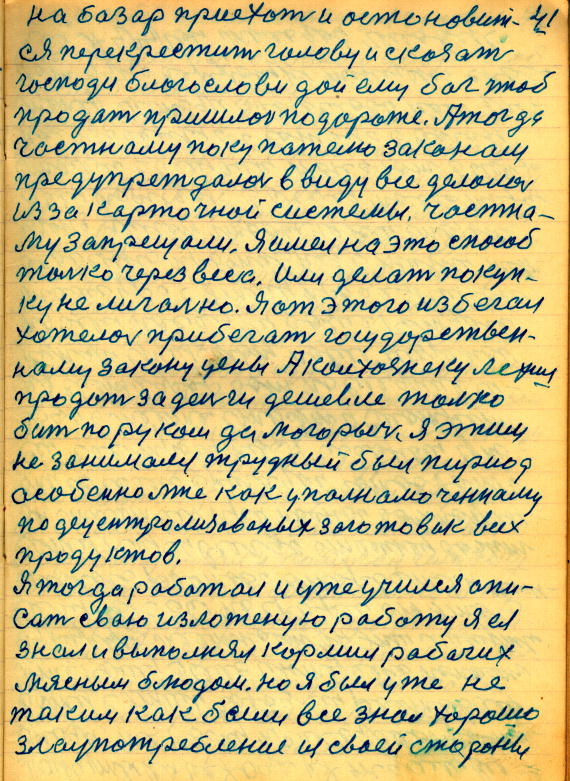 на базар приехот и остановит- 41
ся перекрестит голову и скозат
господи благослови дой ему бог чтоб
продат пришлос подороже. А тогда
частному покупателю законам
предупреждалос ввиду все делолос
из за карточной системы. частна-
му запрещали. Я имел на это способ
толко через веса. Или делат покуп-
ку не лигално. Я от этого избегал
хотелос прибегат государствен-
наму закону цены А колхознеку легчи
продат за денги дешевле толко
бит по рукам да могорыч. Я этим
не занималса трудный был пириод
особенно мне как уполнамоченнаму
по децентролизованых заготовак всех
продуктов.
Я тогда работал и уже учился опи-
сат сваю изложеную работу я ея
знал и выполнял кормил рабочих
мясным блюдом. но я был уже не
таким как были все знал хорошо
злоупотребление из своей стороны